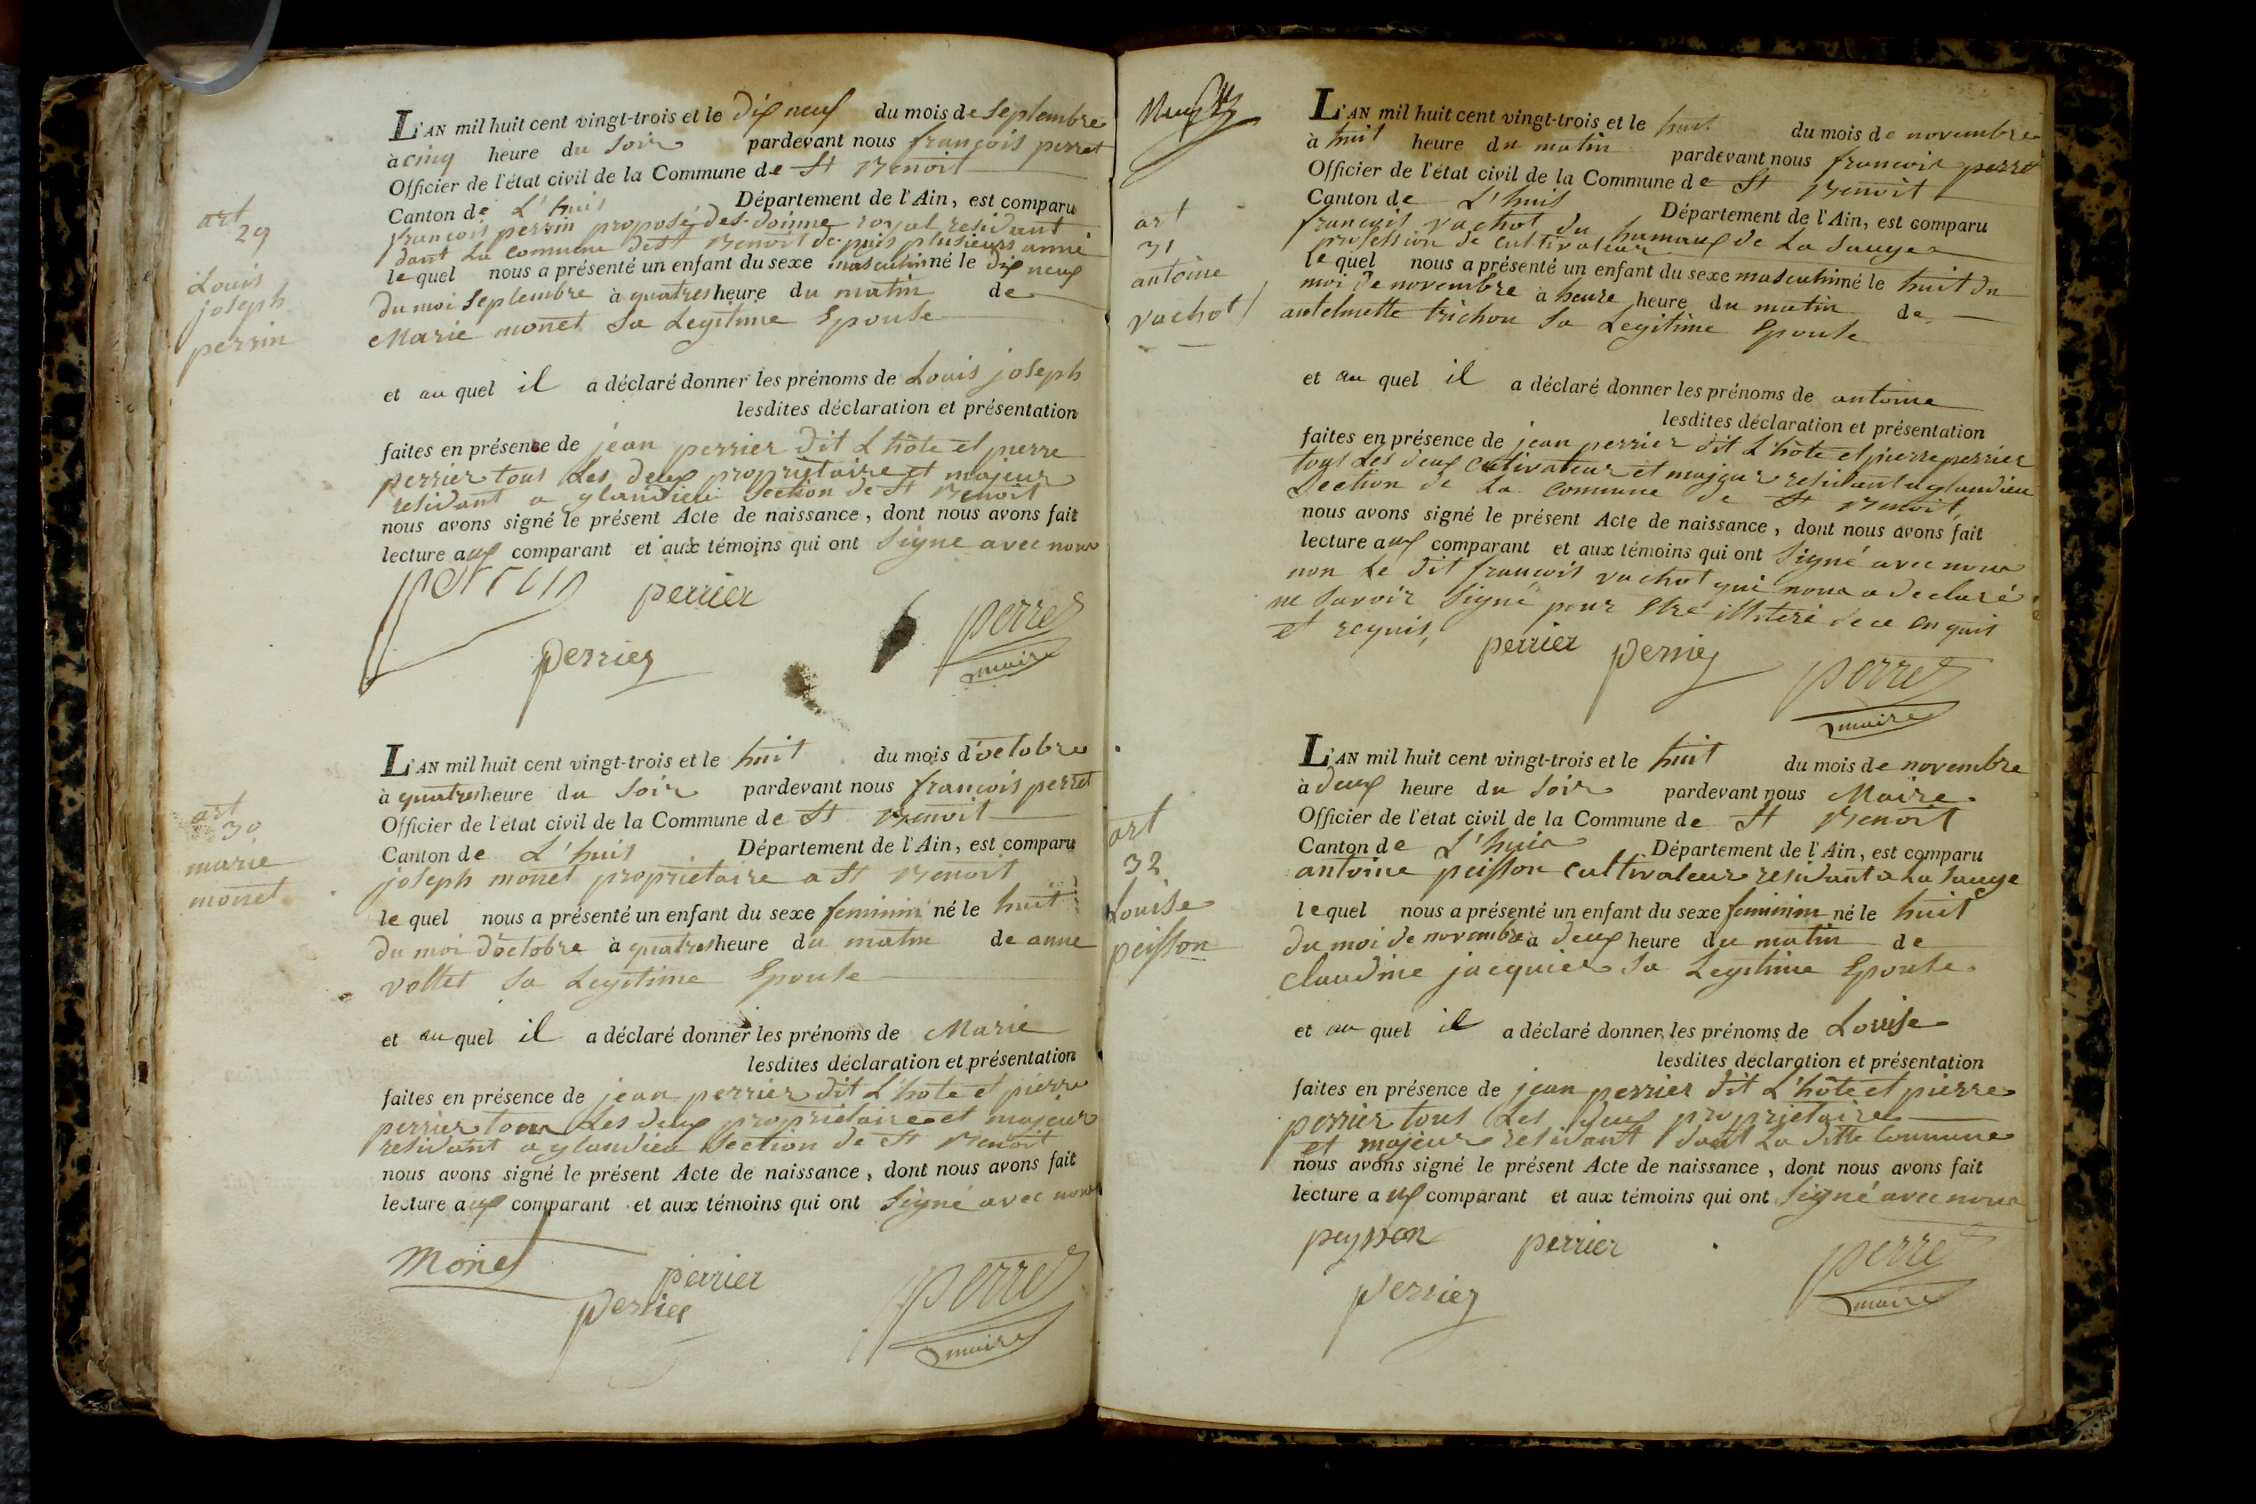 art
29
Louis
joseph
perrin
L'AN mil huit cent vingt-trois et le dix neuf du mois de septembre
à cinq heure du soir pardevant nous françois perret
Officier de l'état civil de la Commune de St Benoit
Canton de L'huis Département de l'Ain, est comparu
françois perrin proposé des doinne royal residant
dant La commune de St Benoit de puis plusieurs anné
le quel nous a présenté un enfant du sexe masculin né le dix neuf
du moi septembre à quatres heure du matin de
Marie monet sa Legitime Epouse
et au quel il a déclaré donner les prénoms de Louis joseph
lesdites déclaration et présentation
faites en présence de jean perrier dit L'hôte et pierre
perrier tous Les deux propriètaire et majeur
residant a glandieu section de St Benoit
nous avons signé le présent Acte de naissance, dont nous avons fait
lecture aux comparant et aux témoins qui ont signe avec nous
perrin perrier
perrier perret
maire
art
30
marie
monet
L'AN mil huit cent vingt-trois et le huit du mois d'octobre
à quatres heure du soir pardevant nous françois perret
Officier de l'état civil de la Commune de St Benoit
Canton de L'huis Département de l'Ain, est comparu
joseph monet propriètaire a St Benoit
le quel nous a présenté un enfant du sexe feminin né le huit
du moi d'octobre à quatres heure du matin de anne
vollet sa Legitime Epouse
et au quel il a déclaré donner les prénoms de Marie
lesdites déclaration et présentation
faites en présence de jean perrier dit L'hôte et pierre
perrier tous Les deux propriètaire et majeur
residant a glandieu section de St Benoit
nous avons signé le présent Acte de naissance, dont nous avons fait
lecture aux comparant et aux témoins qui ont signé avec nous
Monet
perrier
perrier perret
maire
art
31
antoine
vachot
L'AN mil huit cent vingt-trois et le huit du mois de novembre
à huit heure du matin pardevant nous francois perret
Officier de l'état civil de la Commune de St Benoit
Canton de L'huis Département de l'Ain, est comparu
francois vachot du hamaux de La Sauge
profession de cultivateur
le quel nous a présenté un enfant du sexe masculin né le huit du
moi de novembre à heure heure du matin de
antelmette trichon sa Legitime Epouse
et au quel il a déclaré donner les prénoms de antoine
lesdites déclaration et présentation
faites en présence de jean perrier dit L'hôte et pierre perrier
tous Les deux cutivateur et majeur residant a glandieu
section de La commune de St Benoit
nous avons signé le présent Acte de naissance, dont nous avons fait
lecture aux comparant et aux témoins qui ont signé avec nous
non Le dit francois vachot qui nous a declaré
ne savoir signé pour Etre illiteré de ce enquis
et requis,
perrier perrier perret
maire
art
32
Louise
peisson
L'AN mil huit cent vingt-trois et le huit du mois de novembre
à deux heure du soir pardevant nous Maire
Officier de l'état civil de la Commune de St Benoit
Canton de L'huis Département de l'Ain, est comparu
antoine peisson cultivateur residant a La sauge
le quel nous a présenté un enfant du sexe feminin né le huit
du moi de novembre à deux heure du matin de
claudine jacquier sa Legitime Epouse
et au quel il a déclaré donner les prénoms de Louise
lesdites déclaration et présentation
faites en présence de jean perrier dit L'hôte et pierre
perrier tous Les deux propriètaire
et majeur residant dant La ditte Commune
nous avons signé le présent Acte de naissance, dont nous avons fait
lecture aux comparant et aux témoins qui ont signé avec nous
peysson perrier perret
perrier maire